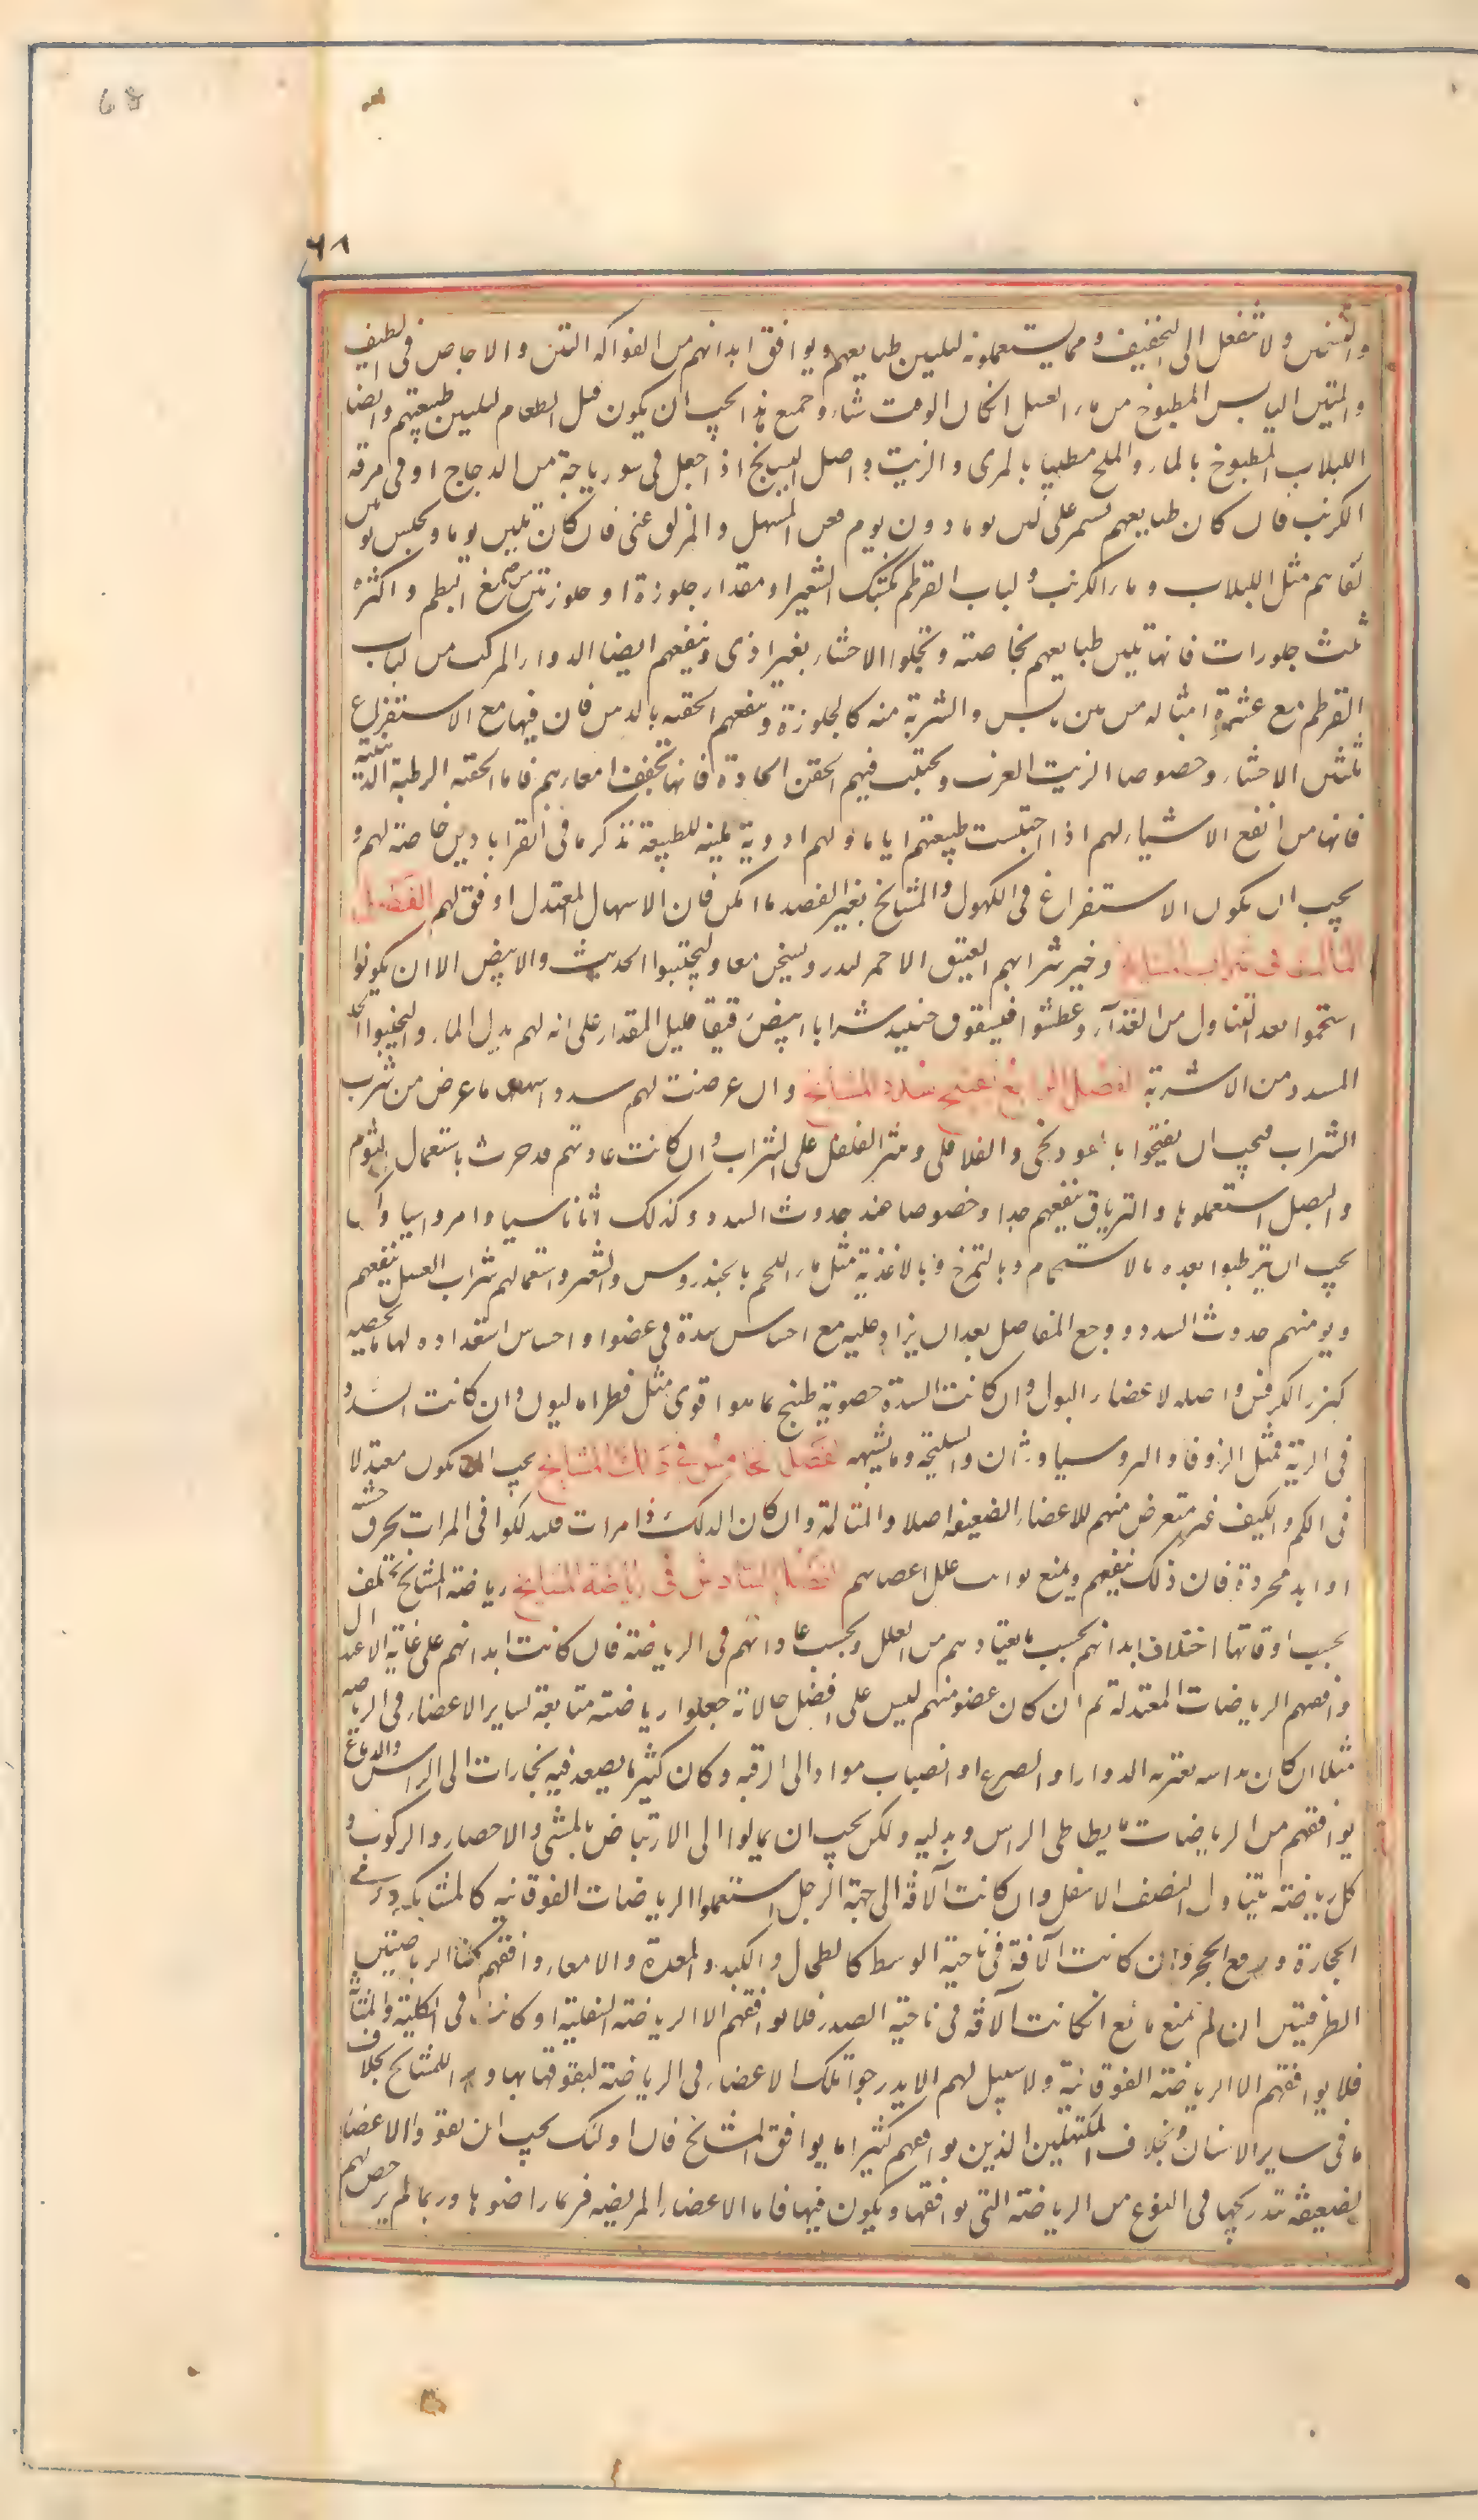 68
٦٨
والتسخين ولا تفعل الى التجفيف ومما يستعملونه لتليين طبايعهم ويوافق ابدانهم من الفواكه التين والاجاص فى الصيف
والتين اليابس المطبوخ من ماء العسل انكان الوقت شتاء وجميع هذا يجب ان يكون قبل الطعام لتليين طبيعتهم وايضا
اللبلاب المطبوخ بالماء والملح مطيبا بالمرى والزيت واصل البسبايج اذا جعل فى شورباجة من الدجاج او فى مرقة
الكرنب فان كان طبايعهم تستمر على لين يوما دون يوم فعن المسهل والمزلق غنى فان كان تلين يوما وتحبس يومين
كفاهم مثل اللبلاب وماء الكرنب ولباب القرطم بكشك الشعير او مقدار جلوزة او جلوزتين من صمغ البطم واكثره
ثلث جلوزات فانها تلين طبايعهم بخاصته وتجلوا الاحشاء بغير اذى وينفعهم ايضا الدواء المركب من لباب
القرطم مع عشرة امثاله من تين يابس والشربة منه كالجلوزة وينفعهم الحقنة بالدهن فان فيها مع الاستفراغ
تليين الاحشاء وخصوصا الزيت العذب ويجتنب فيهم الحقن الحادة فانها تجفف امعاءهم فاما الحقنة الرطبة الدهنية
فانها من انفع الاشياء لهم اذا احتبست طبيعتهم اياما ولهم ادوية ملينة للطبيعة نذكرها فى القراباذين خاصة لهم و
يجب ان يكون الاستفراغ فى الكهول والمشايخ بغير الفصد ما امكن فان الاسهال المعتدل اوفق لهم الفصل
الثالث فى شراب المشايخ وخير شرابهم العتيق الاحمر ليدر ويسخن معا وليجتنبوا الحديث والابيض الا ان يكونوا
استحموا بعد التناول من الغذاء وعطشوا فليسقون حينئذ شرابا ابيض رقيقا قليل المقدار على انه لهم بدل الماء وليجتنبوا الحلو
المسدد من الاشربة الفصل الرابع فى تفتيح سدد المشايخ وان عرضت لهم سدد واسهلها ما عرض من شرب
الشراب فيجب ان يفتحوا بالفودنجى والفلافلى ونثر الفلفل على الشراب وان كانت عادتهم قد جرت باستعمال الثوم
والبصل استعملوها والترياق ينفعهم جدا وخصوصا عند حدوث السدد وكذلك اثاناسيا وامروسيا ولكن
يجب ان يترطبوا بعده بالاستحمام وبالتمرخ وبالاغذية مثل ماء اللحم بالخندروس والشعير واستعمالهم شراب العسل ينفعهم
ويومنهم حدوث السدد ووجع المفاصل بعد ان يزاد عليه مع احساس سدة فى عضو او احساس استعداده لها ما يخصه
كبزر الكرفس واصله لاعضاء البول وان كانت السدة حصوية طبخ بما هو اقوى مثل فطراساليون وان كانت السدد
فى الرية فمثل الزوفا والبرسياوشان والسليخة وما يشبهه الفصل الخامس فى دلك المشايخ يجب ان يكون معتدلا
فى الكم والكيف غير متعرض منهم للاعضاء الضعيفة اصلا والمثانة وان كان الدلك ذا مرات فليدلكوا فى المرات بخرق خشنة
او ايد مجردة فان ذلك ينفعهم ويمنع نوايب علل اعضائهم الفصل السادس فى رياضة المشايخ رياضة المشايخ تختلف
بحسب اوقاتها اختلاف ابدانهم بحسب ما يعتادهم من العلل وبحسب عاداتهم فى الرياضة فان كانت ابدانهم على غاية الاعتدال
وافقهم الرياضات المعتدلة ثم ان كان عضو منهم ليس على افضل حالاته جعلوا رياضته متابعة لساير الاعضاء فى الرياضة
مثلا ان كان راسه يعتريه الدوار او الصرع او انصباب مواد الى الرقبة وكان كثيرا ما يصعد فيه بخارات الى الراس والدماغ
يوافقهم من الرياضات ما يطاطى الراس ويدليه ولكن يجب ان يمالوا الى الارتياض بالمشى والاحضار والركوب و
كل رياضة يتناول النصف الاسفل وان كانت الآفة الى جهة الرجل استعملوا الرياضات الفوقانية كالمشايكة ورمى
الحجارة ورفع الحجر وان كانت الآفة فى ناحية الوسط كالطحال والكبد والمعدة والامعاء وافقهم كلتا الرياضتين
الطرفيتين ان لم يمنع مانع ان كانت الآفة فى ناحية الصدر فلا يوافقهم الا الرياضة السفلية او كانت فى الكلية والمثانة
فلا يوافقهم الا الرياضة الفوقانية ولا سبيل لهم الا يدرجوا تلك الاعضاء فى الرياضة ليقووها بها وهذا للمشايخ بخلاف
ما فى ساير الاسنان وبخلاف المكتهلين الذين يوافقهم كثيرا ما يوافق المشايخ فان اولئك يجب ان يقووا الاعضاء
الضعيفة تدريجها فى النوع من الرياضة التى يوافقها ويكون فيها فاما الاعضاء المريضة فربما راضوها وربما لم يرخص لهم